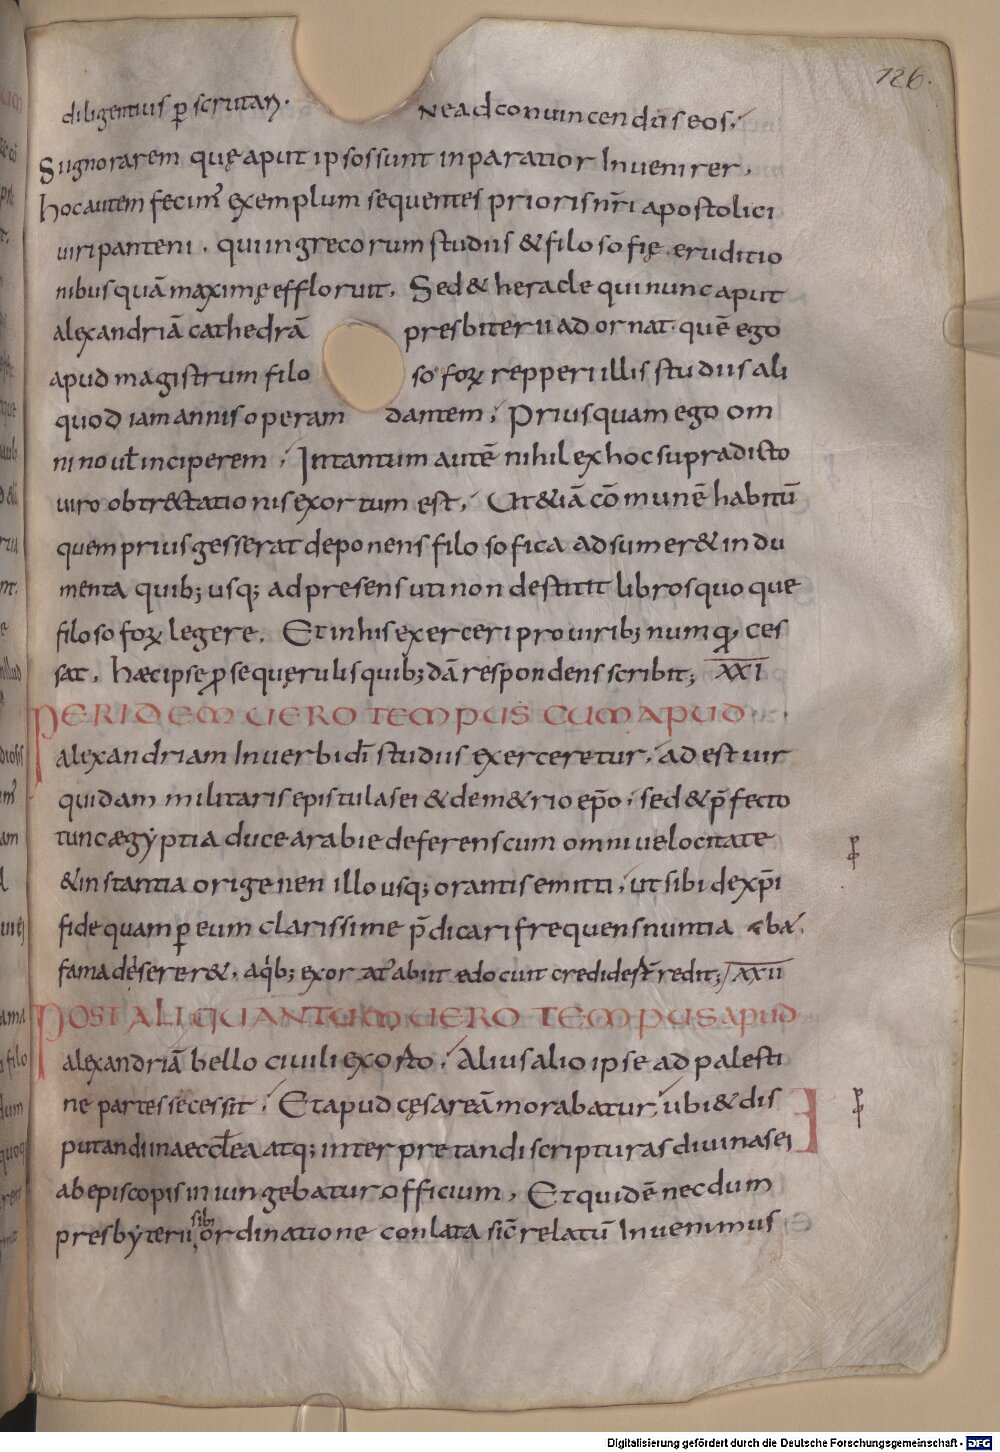 126.
diligentius ꝑ scrutari. Ne ad conuincendũs eos;
Si ignorarem quę aput ipsos sunt in paratior Inuenirer,
hoc autem fecim᷒ exemplum sequentes prioris nr̃i apostolici
uiri panteni. qui in grecorum studiis & filosofię eruditio
nibus quã maximę effloruit. Sed & heracle qui nunc aput
alexandriã cathedrã presbiterii adornat. quẽ ego
apud magistrum filosofoꝝ repperi illis studiis ali
quod iam annis operam dantem; Prius quam ego om
nino ut̃ inciperem; Intantum autẽ nihil ex hoc supra dicto
uiro obtr&tationis exortum est, Ut &iã cõmunẽ habitũ
quem prius gesserat deponens filosofica adsumer& indu
menta quib; usq; ad presens uti non destitit libros quoque
filosofoꝝ legere. Et in his exerceri pro uirib; numꝗ ces
sat. hæc ipse ꝓ se quęrulis quibꝫdã respondens scribit; XXI
Per idem uero tempus cum apud
alexandriam In uerbi dī studiis exerceretur, adest uir
quidam militaris epistulas ei & dem&rio ep̃o; sed & p̃fecto
tunc ægẏptia duce arabie deferens cum omni uelocitate
& instantia origenen illo usq; orantis emitti, ut sibi de xp̄i
fide quam ꝑ eum clarissime p̃dicari frequens nuntia ba᷒.
fama desserer&, aq̇b; exorat᷒ abiit edocuit crediderunt redit; XXII
Post aliquantum uero tempus apud
alexandriã bello ciuili exorto; Alius alio ipse ad palesti
ne partes secessit; Et apud cęsareã morabatur, ubi & dis
putandi in aecclea atq; interpretandi scripturas diuinas ei
ab episcopis iniungebatur officium, Et quidẽ necdum
presbẏterii sibi ordinatione conlata sic̃ relatũ Inuenimus